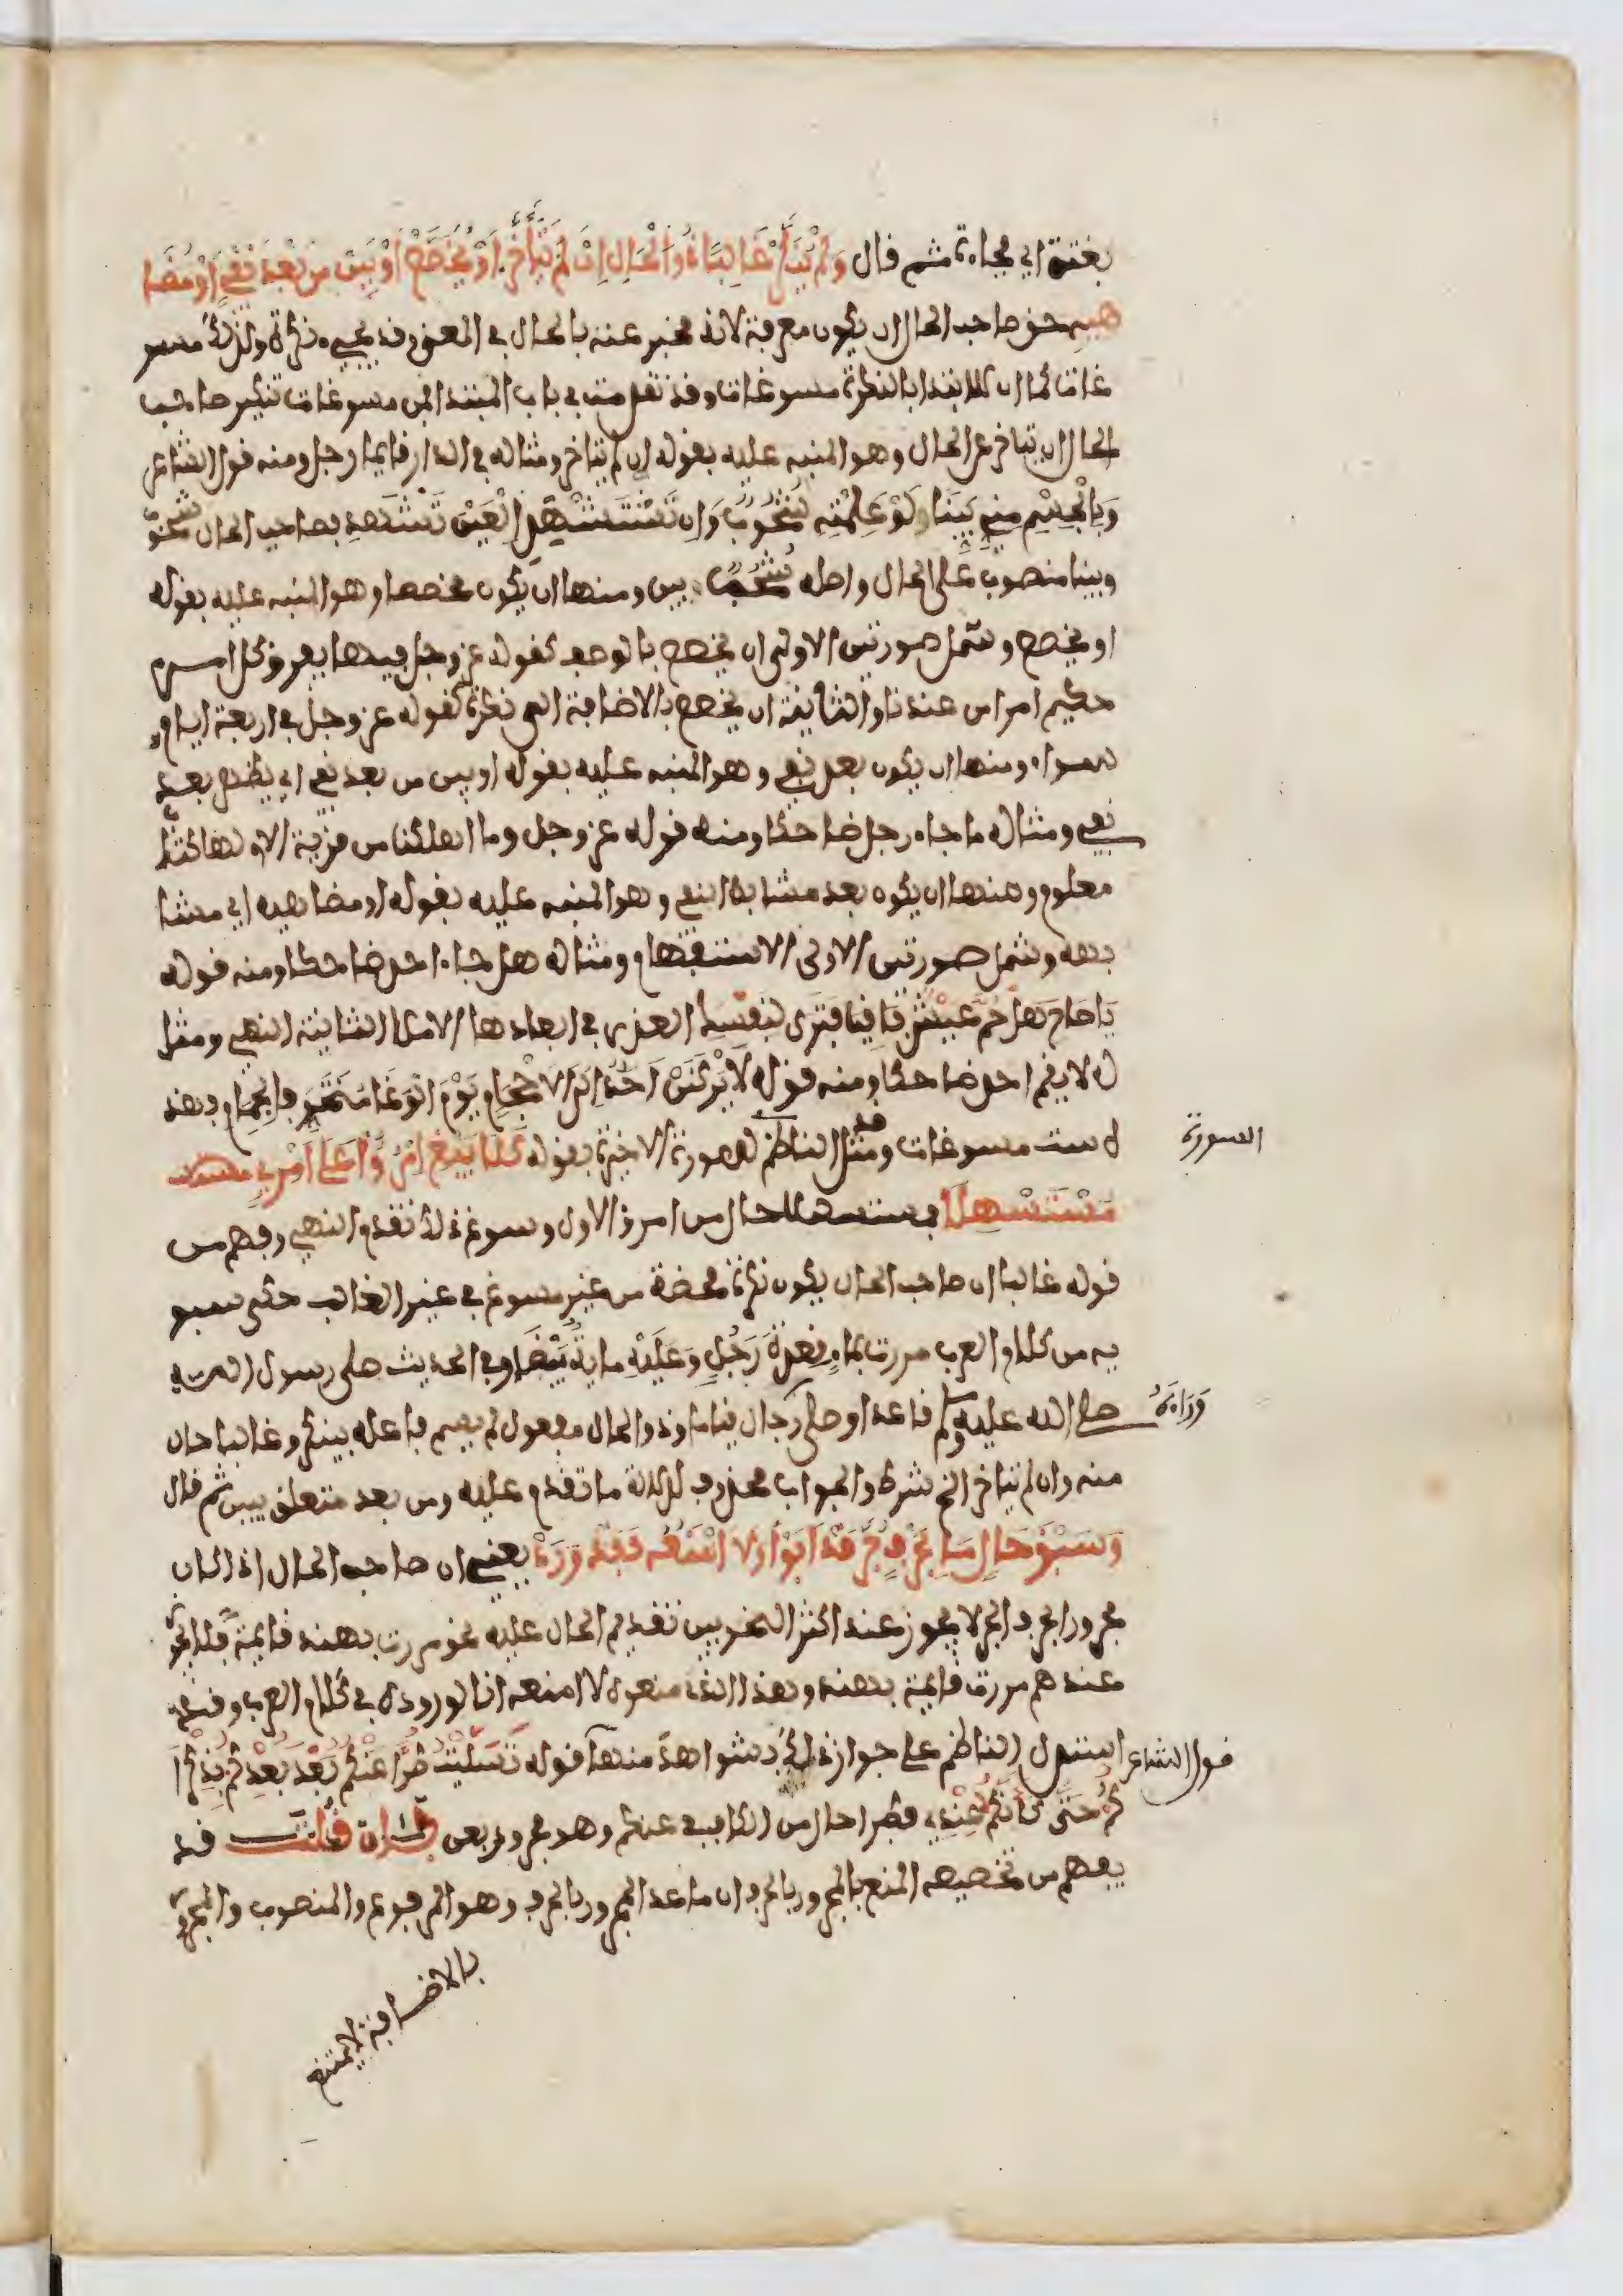 بغتة اي فجاءة ثم قال وَلَمْ يُنَكَّرْ غَالِبًا ذُو الْحَالِ اِنْ لَمْ يَتَأَخَّرْ اَوْ يُخَصَّصْ اَوْ يَبِنْ مِن بَعْدِ نَفْيٍ اَوْ مُضَا
هِيهِ حق صاحب الحال ان يكون معرفة لانه مخبر عنه بالحال في المعنى وقد يجيء نكرة ولذلك مسو
غات كما ان للابتدا بالنكرة مسوغات وقد تقدمت في باب المبتدا فمن مسوغات تنكير صاحب
الحال ان يتاخر عن الحال وهو المنبه عليه بقوله ان لم يتاخر ومثاله في الدار قايما رجل ومنه قول الشاعر
وَبِالْجِسْمِ مِنِّي بَيِّنًا لَوْ عَلِمْتِهِ شُحُوبٌ وَاِن تَسْتَشْهِدِي الْعَيْنَ تَشْهَدِ فصاحب الحال شحوب
وبينا منصوب على الحال واصله شحوب بين ومنها ان يكون مخصصا وهو المنبه عليه بقوله
او يخصص وشمل صورتين الاولى ان يخصص بالوصف كقوله عز وجل فيها يفرق كل امر
حكيم امرا من عندنا والثانية ان يخصص بالاضافة الى نكرة كقوله عز وجل في اربعة ايام
سواء ومنها ان يكون بعد نفي وهو المنبه عليه بقوله او يبن من بعد نفي اي يظهر بعد
نفي ومثاله ما جاء رجل ضاحكا ومنه قوله عز وجل وما اهلكنا من قرية الا ولها كتاب
معلوم ومنها ان يكون بعد مشابه النفي وهو المنبه عليه بقوله او مضاهيه اي مشا
بهه وشمل صورتين الاولى الاستفهام ومثاله هل جاء احد ضاحكا ومنه قوله
يَا صَاحِ هَلْ حُمَّ عَيْشٌ بَاقِيًا فَتَرَى لِنَفْسِكَ العذر في ابعادها الاملا الثانية النهي ومثا
له لا يقم احد ضاحكا ومنه قوله لَا يَرْكَنَنْ اَحَدٌ اِلَى الْاَحْجَامِ يَوْمَ الْوَغَا مُتَخَوِّفًا لِحِمَامِ فهذه
ست مسوغات وقد مثل الناظم للصورة الاخيرة بقوله كَلَا يَبْغِ امْرُؤٌ عَلَى امْرِئٍ
السورة
مُسْتَسْهِلَا فمستسهلا حال من امرؤ الاول وسوغ ذلك تقدم النهي وفهم من
قوله غالبا ان صاحب الحال يكون نكرة محضة من غير مسوغ في غير الغالب حكى سيبو
يه من كلام العرب مررت بماءٍ قِعْدَةَ رَجُلٍ وَعَلَيْهِ ماية بَيْضًا وفي الحديث صلى رسول الله
صلى الله عليه وسلم قاعدا وصلى رجال قياما وذو الحال مفعول لم يسم فاعله بينكر وغالبا حال
وَرَاءَهُ
منه وان لم يتاخر الخ شرط والجواب محذوف لدلالة ما تقدم عليه ومن بعد متعلق بيبن ثم قال
وَسَبْقَ حَالٍ مَا بِحَرْفٍ جُرَّ قَدْ اَبَوْا وَلَا اَمْنَعُهُ فَقَدْ وَرَدْ يعني ان صاحب الحال اذا كان
مجرورا بحرف الجر لا يجوز عند اكثر النحويين تقديم الحال عليه نحو مررت بهند قايمة فلا يجوز
عندهم مررت قايمة بهند وهذا الذي منعوه لا امنعه انا لوروده في كلام العرب وقد
استدل الناظم على جواز ذلك بشواهد منها قوله تَسَلَّيْتُ طُرًّا عَنْكُمُ بَعْدَ بَعْدِكُم بِذِكْرَا
قول الشاعر
كُمُ حَتَّى كَاَنَّكُمُ عِنْدِي فطرا حال من الكاف في عنكم وهو مجرور بعن فان قُلْتَ قد
يفهم من تخصيصه المنع بالمجرور بالحرف ان ما عدا المجرور بالحرف وهو المرفوع والمنصوب والمجرور
بالاضافة لا يمتنع